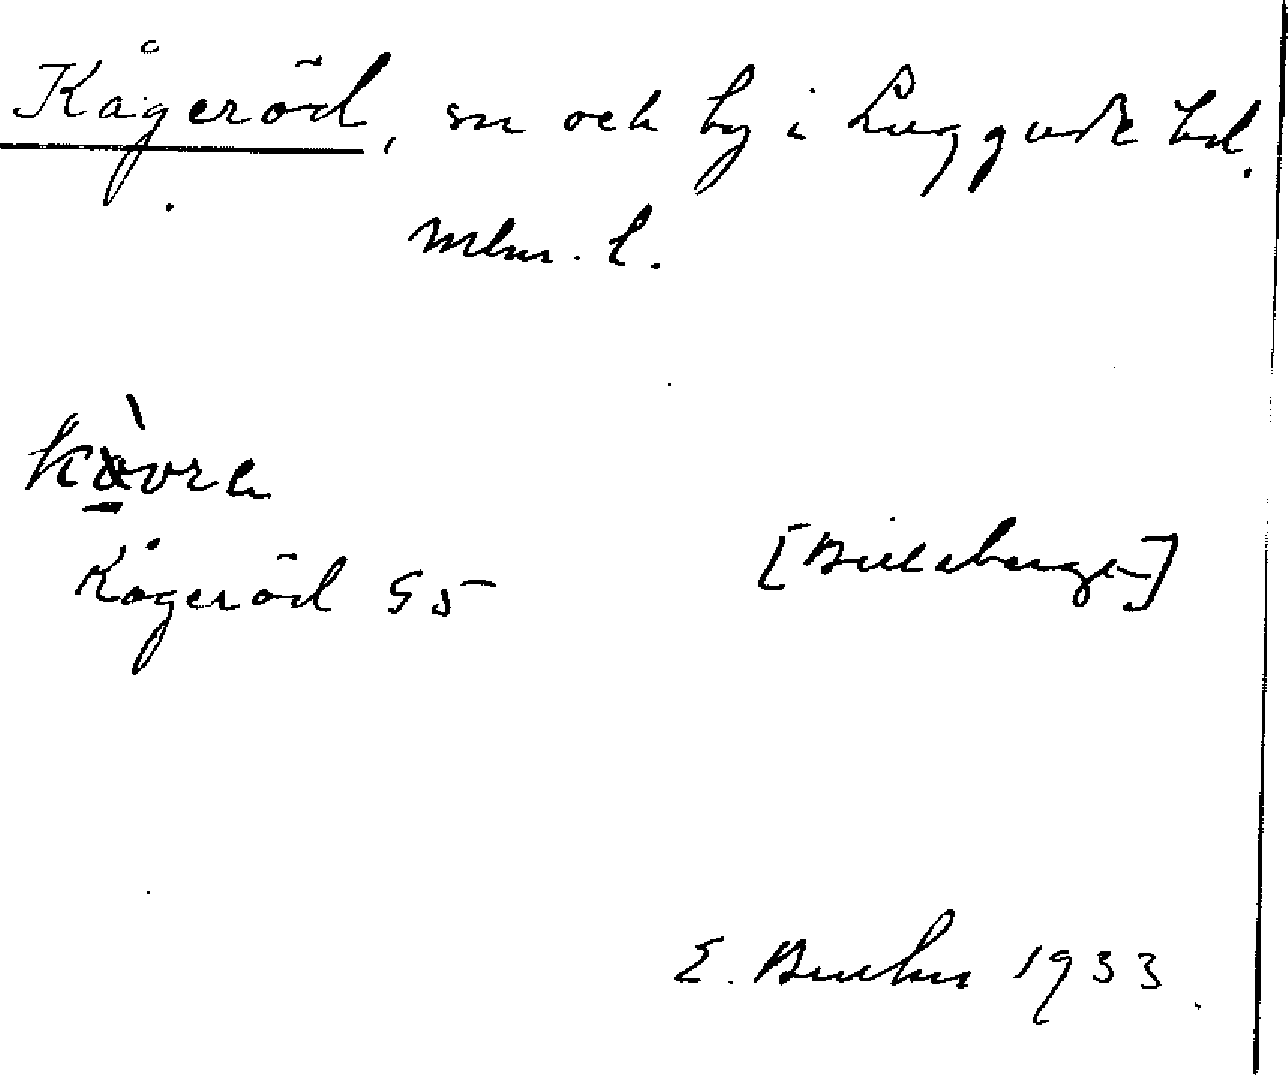 Kågeröd, sn och by i Luggude hd.
Mlm. l.
kàvre
Kågeröd 55 [Billeberga]
E. Bruhn 1933.